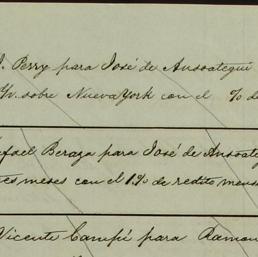 J. Perry para José de Ansoategui
sobre Nueva York con el % de
fael Beraza para José de Ansoateg
es meses con el 1% de redito mens
Vicente Campú para Ramon